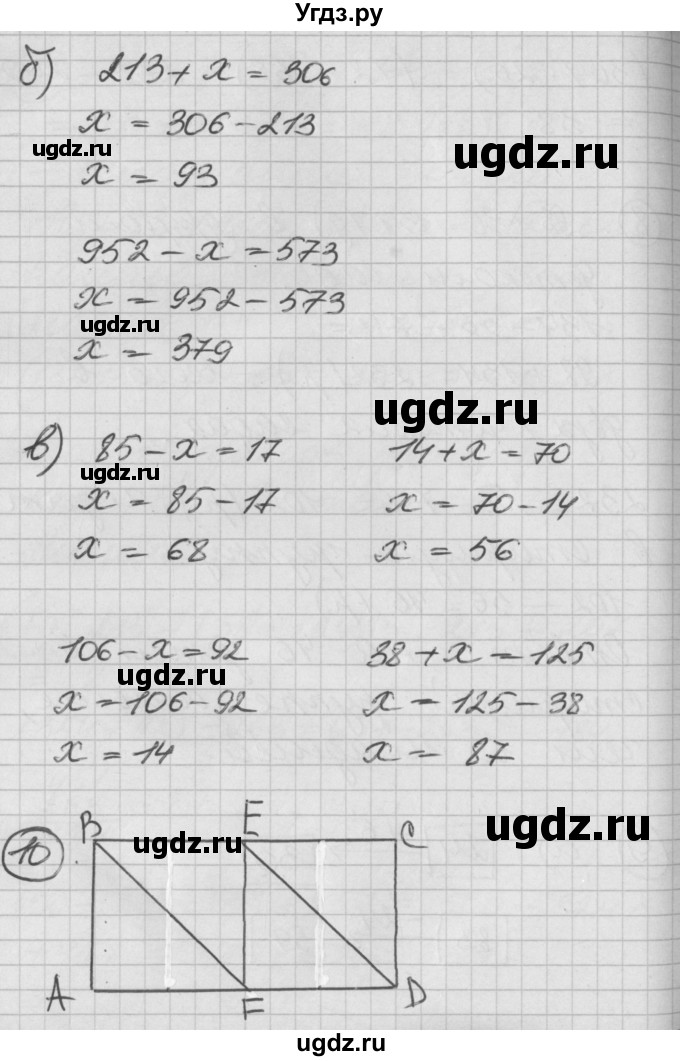 Угдз.ру
б) 213 + x = 306
x = 306 - 213
ugdz.ru
ugdz.ru
x = 93
952 - x = 573
x = 952 - 573
ugdz.ru
x = 379
ugdz.ru
в) 85 - x = 17
ugdz.ru
x = 85 - 17
x = 68
14 + x = 70
x = 70 - 14
x = 56
106 - x = 92
ugdz.ru
x = 106 - 92
x = 14
38 + x = 125
x = 125 - 38
x = 87
ugdz.ru
10
B E C
ugdz.ru
A F D
ugdz.ru